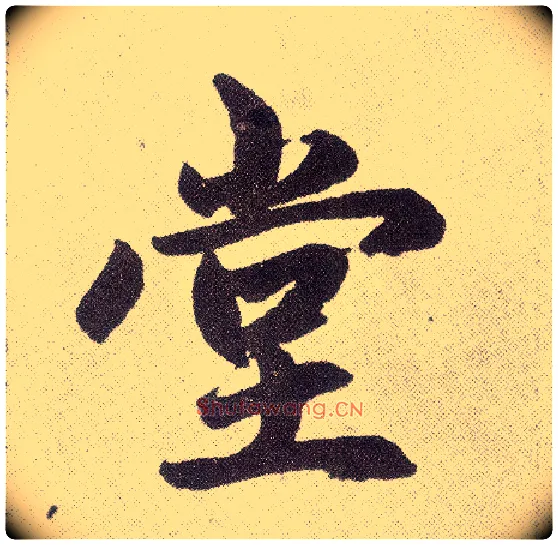 堂
Shufawang.CN